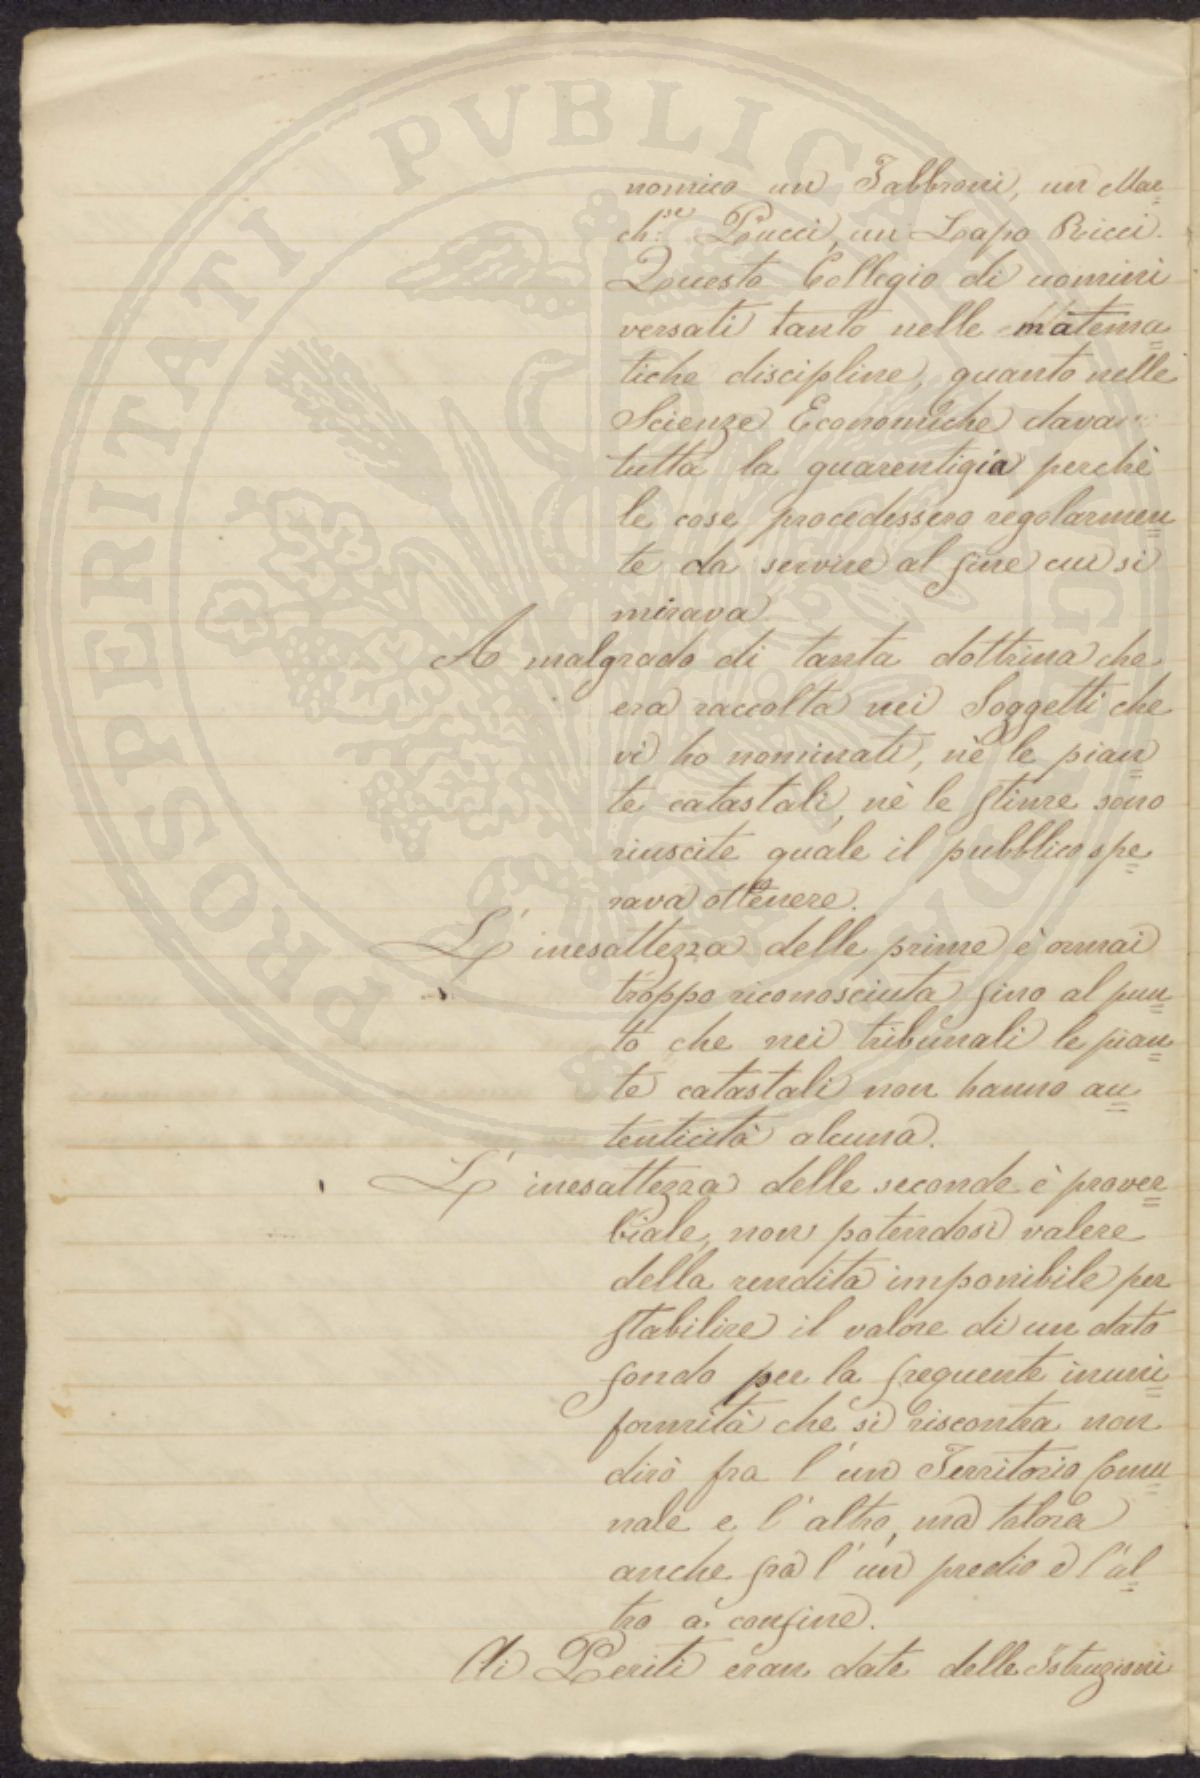 nomico un Fabbroni, un Mar=
ch.se Pucci, un Lapo Ricci.
Questo Collegio di uomini
versati tanto nelle matema=
tiche discipline, quanto nelle
Scienze Economiche dava
tutta la guarentigia perchè
le cose procedessero regolarmen=
te da servire al fine cui si
mirava.
A malgrado di tanta dottrina che
era raccolta nei Soggetti che
vi ho nominati, nè le pian=
te catastali, nè le stime sono
riuscite quale il pubblico spe=
rava ottenere.
L'inesattezza delle prime è ormai
troppo riconosciuta fino al pun=
to che nei tribunali le pian=
te catastali non hanno au=
tenticità alcuna.
L'inesattezza delle seconde è prover=
biale, non potendosi valere
della rendita imponibile per
stabilire il valore di un dato
fondo per la frequente inuni=
formità che si riscontra non
dirò fra l'un Territorio Comu=
nale e l'altro, ma talora
anche fra l'un predio e l'al=
tro a confine.
Ai Periti eran date delle Istruzioni
PROSPERITATI PVBLICAE AVGENDAE